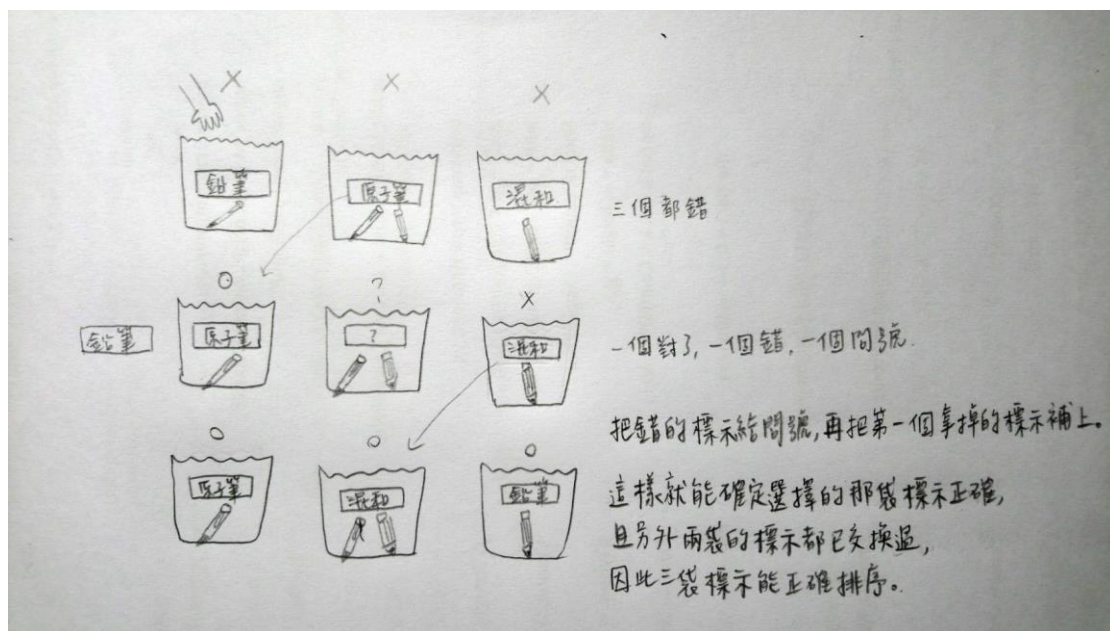 鉛筆
原子筆
混和
三個都錯
鉛筆
原子筆
?
?
混和
一個對了,一個錯,一個問號.
把錯的標示給問號,再把第一個拿掉的標示補上。
原子筆
混和
鉛筆
這樣就能確定選擇的那袋標示正確,
且另外兩袋的標示都已交換過,
因此三袋標示能正確排序。